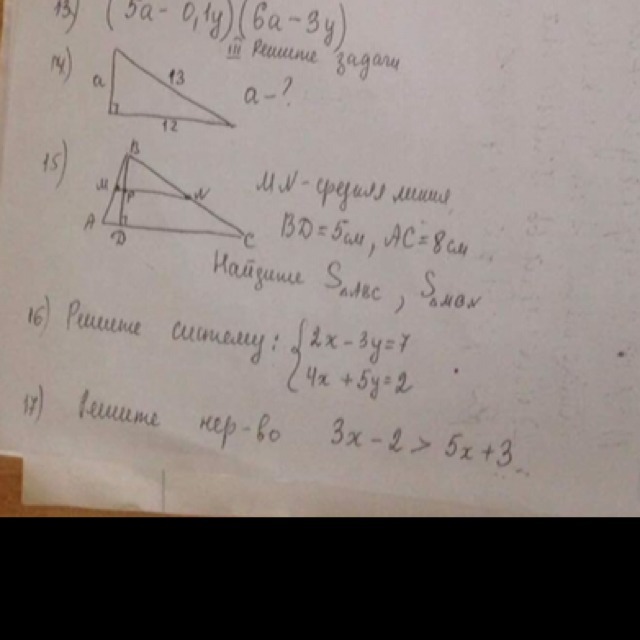 13) (5a - 0,1y)(6a - 3y)
III Решите задачи
14) a 13 12 a - ?
15) B M P N A D C
MN - средняя линия
BD = 5 см, AC = 8 см
Найдите S
16) Решите систему: { 2x - 3y = 7
4x + 5y = 2
17) Решите нер-во 3x - 2 > 5x + 3